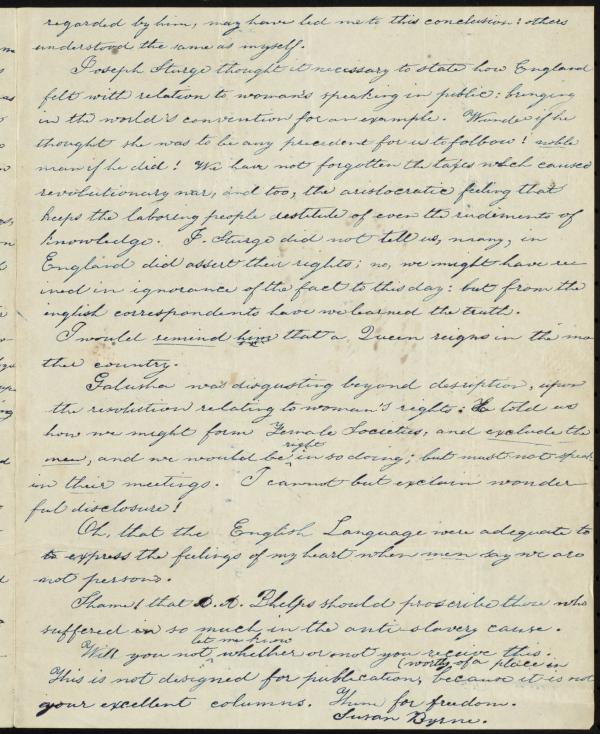 regarded by him, may have led me to this conclusion: others
understood the same as myself.
Joseph Sturge thought it necessary to state how England
felt with relation to woman's speaking in public: bringing
in the world's convention for an example. Wonder if he
thought she was to be any precedent for us to follow! noble
man if he did! We have not forgotten the taxes which caused
revolutionary war, and too, the aristocratic feeling that
keeps the laboring people destitute of even the rudiments of
knowledge. J. Sturge did not tell us, many, in
England did assert their rights; no, we might have re
ined in ignorance of the fact to this day: but from the
english correspondents have we learned the truth.
I would remind him that a Queen reigns in the mo
ther country.
Galusha was disgusting beyond desription, upon
the resolution relating to woman's rights: He told us
how we might form Female Societies, and exclude the
men, and we would be right in so doing; but must not speak
in their meetings. I cannot but exclaim wonder
ful disclosure!
Oh, that the English Language were adequate to
to express the feelings of my heart when men say we are
not persons.
Shame! that A. A. Phelps should proscribe those who
suffered in so much in the anti-slavery cause.
Will you not let me know whether or not you receive this.
This is not designed for publication, because it is not (worthy of a place in
your excellent columns. Thine for freedom.
Susan Byrne.